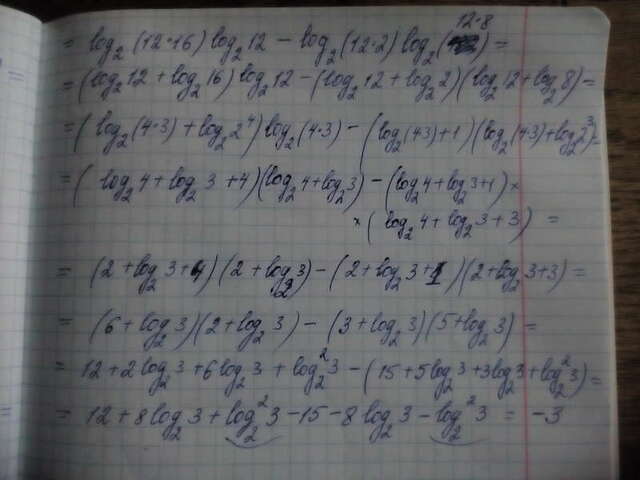 12·8
= log₂(12·16) log₂12 − log₂(12·2) log₂( ) =
= (log₂12 + log₂16) log₂12 − (log₂12 + log₂2)(log₂12 + log₂8) =
= (log₂(4·3) + log₂2⁴) log₂(4·3) − (log₂(4·3) + 1)(log₂(4·3) + log₂2³) =
= (log₂4 + log₂3 + 4)(log₂4 + log₂3) − (log₂4 + log₂3 + 1) ×
× (log₂4 + log₂3 + 3) =
= (2 + log₂3 + 4)(2 + log₂3) − (2 + log₂3 + 1)(2 + log₂3 + 3) =
= (6 + log₂3)(2 + log₂3) − (3 + log₂3)(5 + log₂3) =
= 12 + 2log₂3 + 6log₂3 + log₂²3 − (15 + 5log₂3 + 3log₂3 + log₂²3) =
= 12 + 8log₂3 + log₂²3 − 15 − 8log₂3 − log₂²3 = −3